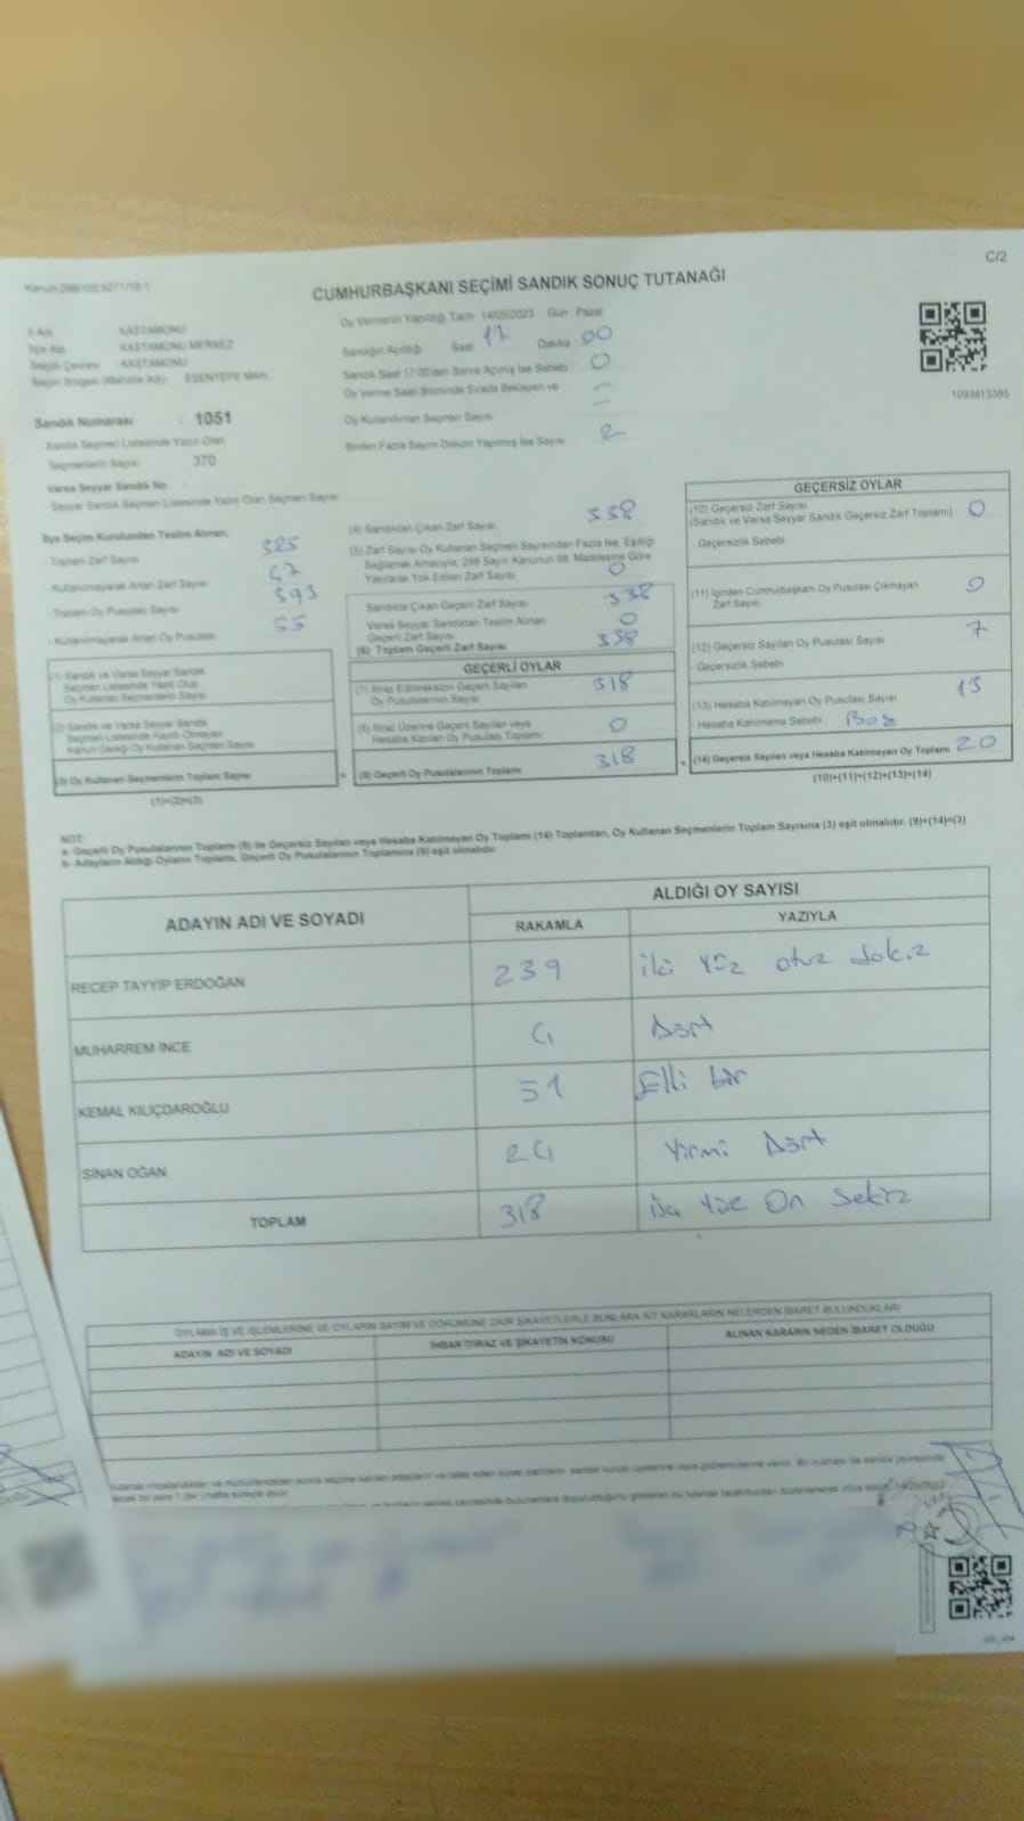 C/2
CUMHURBAŞKANI SEÇİMİ SANDIK SONUÇ TUTANAĞI
Oy Vermenin Yapıldığı Tarih 14/05/2023 Gün Pazar
İl Adı KASTAMONU
İlçe Adı KASTAMONU MERKEZ
Seçim Çevresi KASTAMONU
ESENTEPE MAH.
Sandığın Açıldığı Saat 17 Dakika 00
Sandık Saat 17:00'den Sonra Açılmış İse Sebebi 0
Oy Verme Saati Bitiminde Sırada Bekleyen ve
Oy Kullandırılan Seçmen Sayısı
Birden Fazla Sayım Döküm Yapılmış İse Sayısı 2
1093813385
Sandık Numarası : 1051
Sandık Seçmen Listesinde Yazılı Olan
Seçmenlerin Sayısı 370
Varsa Seyyar Sandık No
Seyyar Sandık Seçmen Listesinde Yazılı Olan Seçmen Sayısı
İlçe Seçim Kurulundan Teslim Alınan;
Toplam Zarf Sayısı 385
Kullanılmayarak Artan Zarf Sayısı 47
Toplam Oy Pusulası Sayısı 393
Kullanılmayarak Artan Oy Pusulası 55
(1) Sandık ve Varsa Seyyar Sandık
Seçmen Listesinde Yazılı Olup
Oy Kullanan Seçmenlerin Sayısı
(2) Sandık ve Varsa Seyyar Sandık
Seçmen Listesinde Kayıtlı Olmayan
Kanun Gereği Oy Kullanan Seçmen Sayısı
(3) Oy Kullanan Seçmenlerin Toplam Sayısı
(1)+(2)=(3)
(4) Sandıktan Çıkan Zarf Sayısı 338
(5) Zarf Sayısı Oy Kullanan Seçmen Sayısından Fazla İse, Eşitliği
Sağlamak Amacıyla, 298 Sayılı Kanunun 98. Maddesine Göre
Yakılarak Yok Edilen Zarf Sayısı 0
Sandıkta Çıkan Geçerli Zarf Sayısı 338
Varsa Seyyar Sandıktan Teslim Alınan
Geçerli Zarf Sayısı 0
(6) Toplam Geçerli Zarf Sayısı 338
GEÇERLİ OYLAR
(7) İtiraz Edilmeksizin Geçerli Sayılan
Oy Pusulalarının Sayısı 318
(8) İtiraz Üzerine Geçerli Sayılan veya
Hesaba Katılan Oy Pusulası Toplamı 0
(9) Geçerli Oy Pusulalarının Toplamı 318
GEÇERSİZ OYLAR
(10) Geçersiz Zarf Sayısı
(Sandık ve Varsa Seyyar Sandık Geçersiz Zarf Toplamı) 0
Geçersizlik Sebebi
(11) İçinden Cumhurbaşkanı Oy Pusulası Çıkmayan
Zarf Sayısı 0
(12) Geçersiz Sayılan Oy Pusulası Sayısı 7
Geçersizlik Sebebi
(13) Hesaba Katılmayan Oy Pusulası Sayısı 13
Hesaba Katılmama Sebebi Boş
(14) Geçersiz Sayılan veya Hesaba Katılmayan Oy Toplamı 20
(10)+(11)+(12)+(13)=(14)
NOT:
a- Geçerli Oy Pusulalarının Toplamı (9) ile Geçersiz Sayılan veya Hesaba Katılmayan Oy Toplamı (14) Toplamları, Oy Kullanan Seçmenlerin Toplam Sayısına (3) eşit olmalıdır. (9)+(14)=(3)
b- Adayların Aldığı Oyların Toplamı, Geçerli Oy Pusulalarının Toplamına (9) eşit olmalıdır.
ADAYIN ADI VE SOYADI ALDIĞI OY SAYISI
RAKAMLA YAZIYLA
RECEP TAYYİP ERDOĞAN 239 iki yüz otuz dokuz
MUHARREM İNCE 4 Dört
KEMAL KILIÇDAROĞLU 51 Elli bir
SİNAN OĞAN 24 Yirmi Dört
TOPLAM 318 Üç Yüz On Sekiz
ADAYIN ADI VE SOYADI
ALINAN KARARIN NEDEN İBARET OLDUĞU